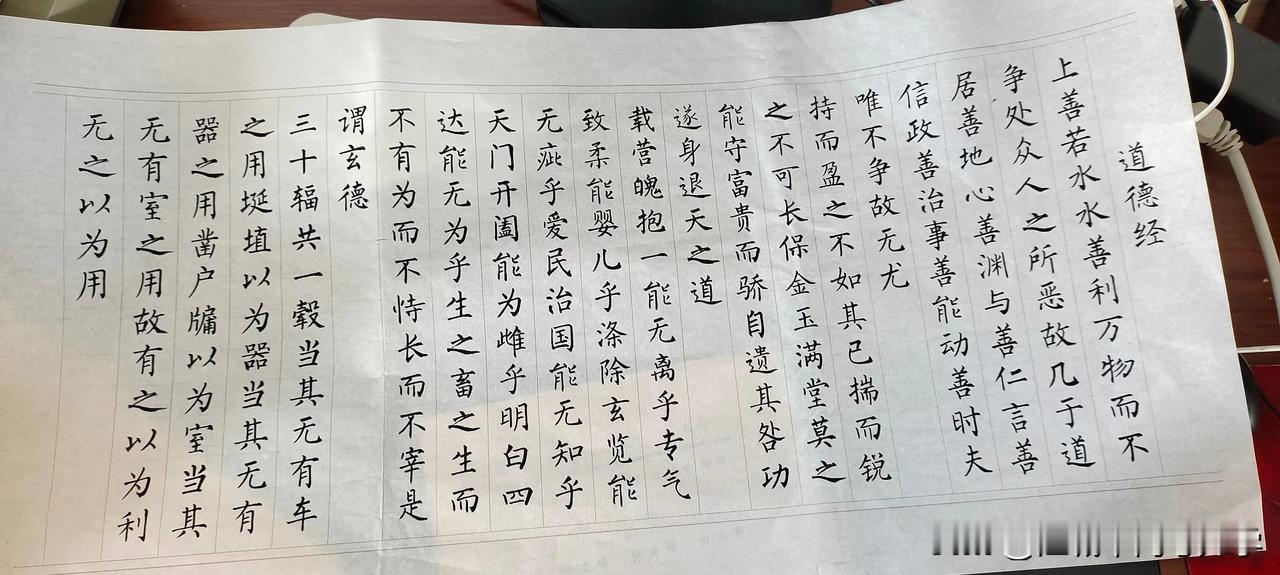 道德经
上善若水水善利万物而不
争处众人之所恶故几于道
居善地心善渊与善仁言善
信政善治事善能动善时夫
唯不争故无尤
持而盈之不如其已揣而锐
之不可长保金玉满堂莫之
能守富贵而骄自遗其咎功
遂身退天之道
载营魄抱一能无离乎专气
致柔能婴儿乎涤除玄览能
无疵乎爱民治国能无知乎
天门开阖能为雌乎明白四
达能无为乎生之畜之生而
不有为而不恃长而不宰是
谓玄德
三十辐共一毂当其无有车
之用埏埴以为器当其无有
器之用凿户牖以为室当其
无有室之用故有之以为利
无之以为用